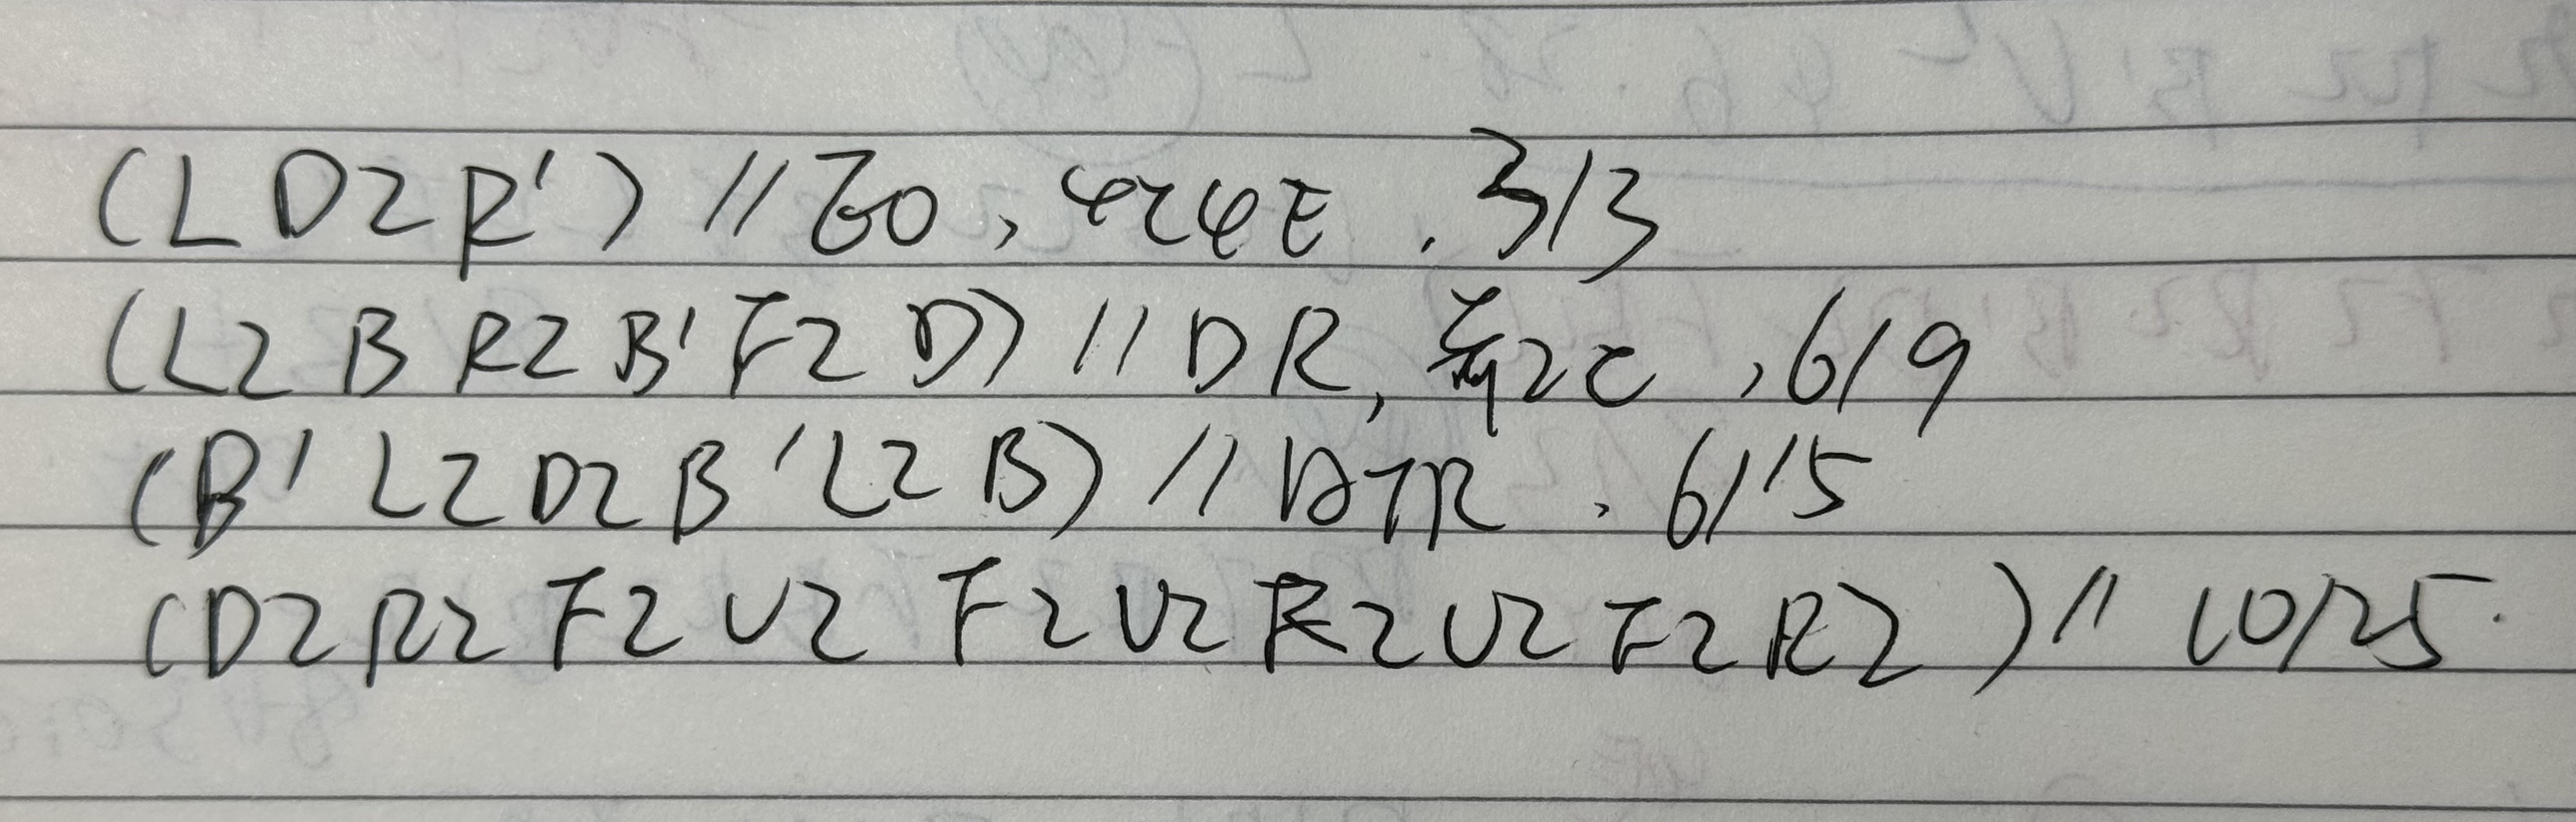 (L D2 R') // EO, 4c4E. 3/3
(L2 B R2 B' F2 D) // DR, 2c, 6/9
(B' L2 D2 B' L2 B) // HTR. 6/15
(D2 R2 F2 U2 F2 U2 R2 U2 F2 R2) // 10/25.